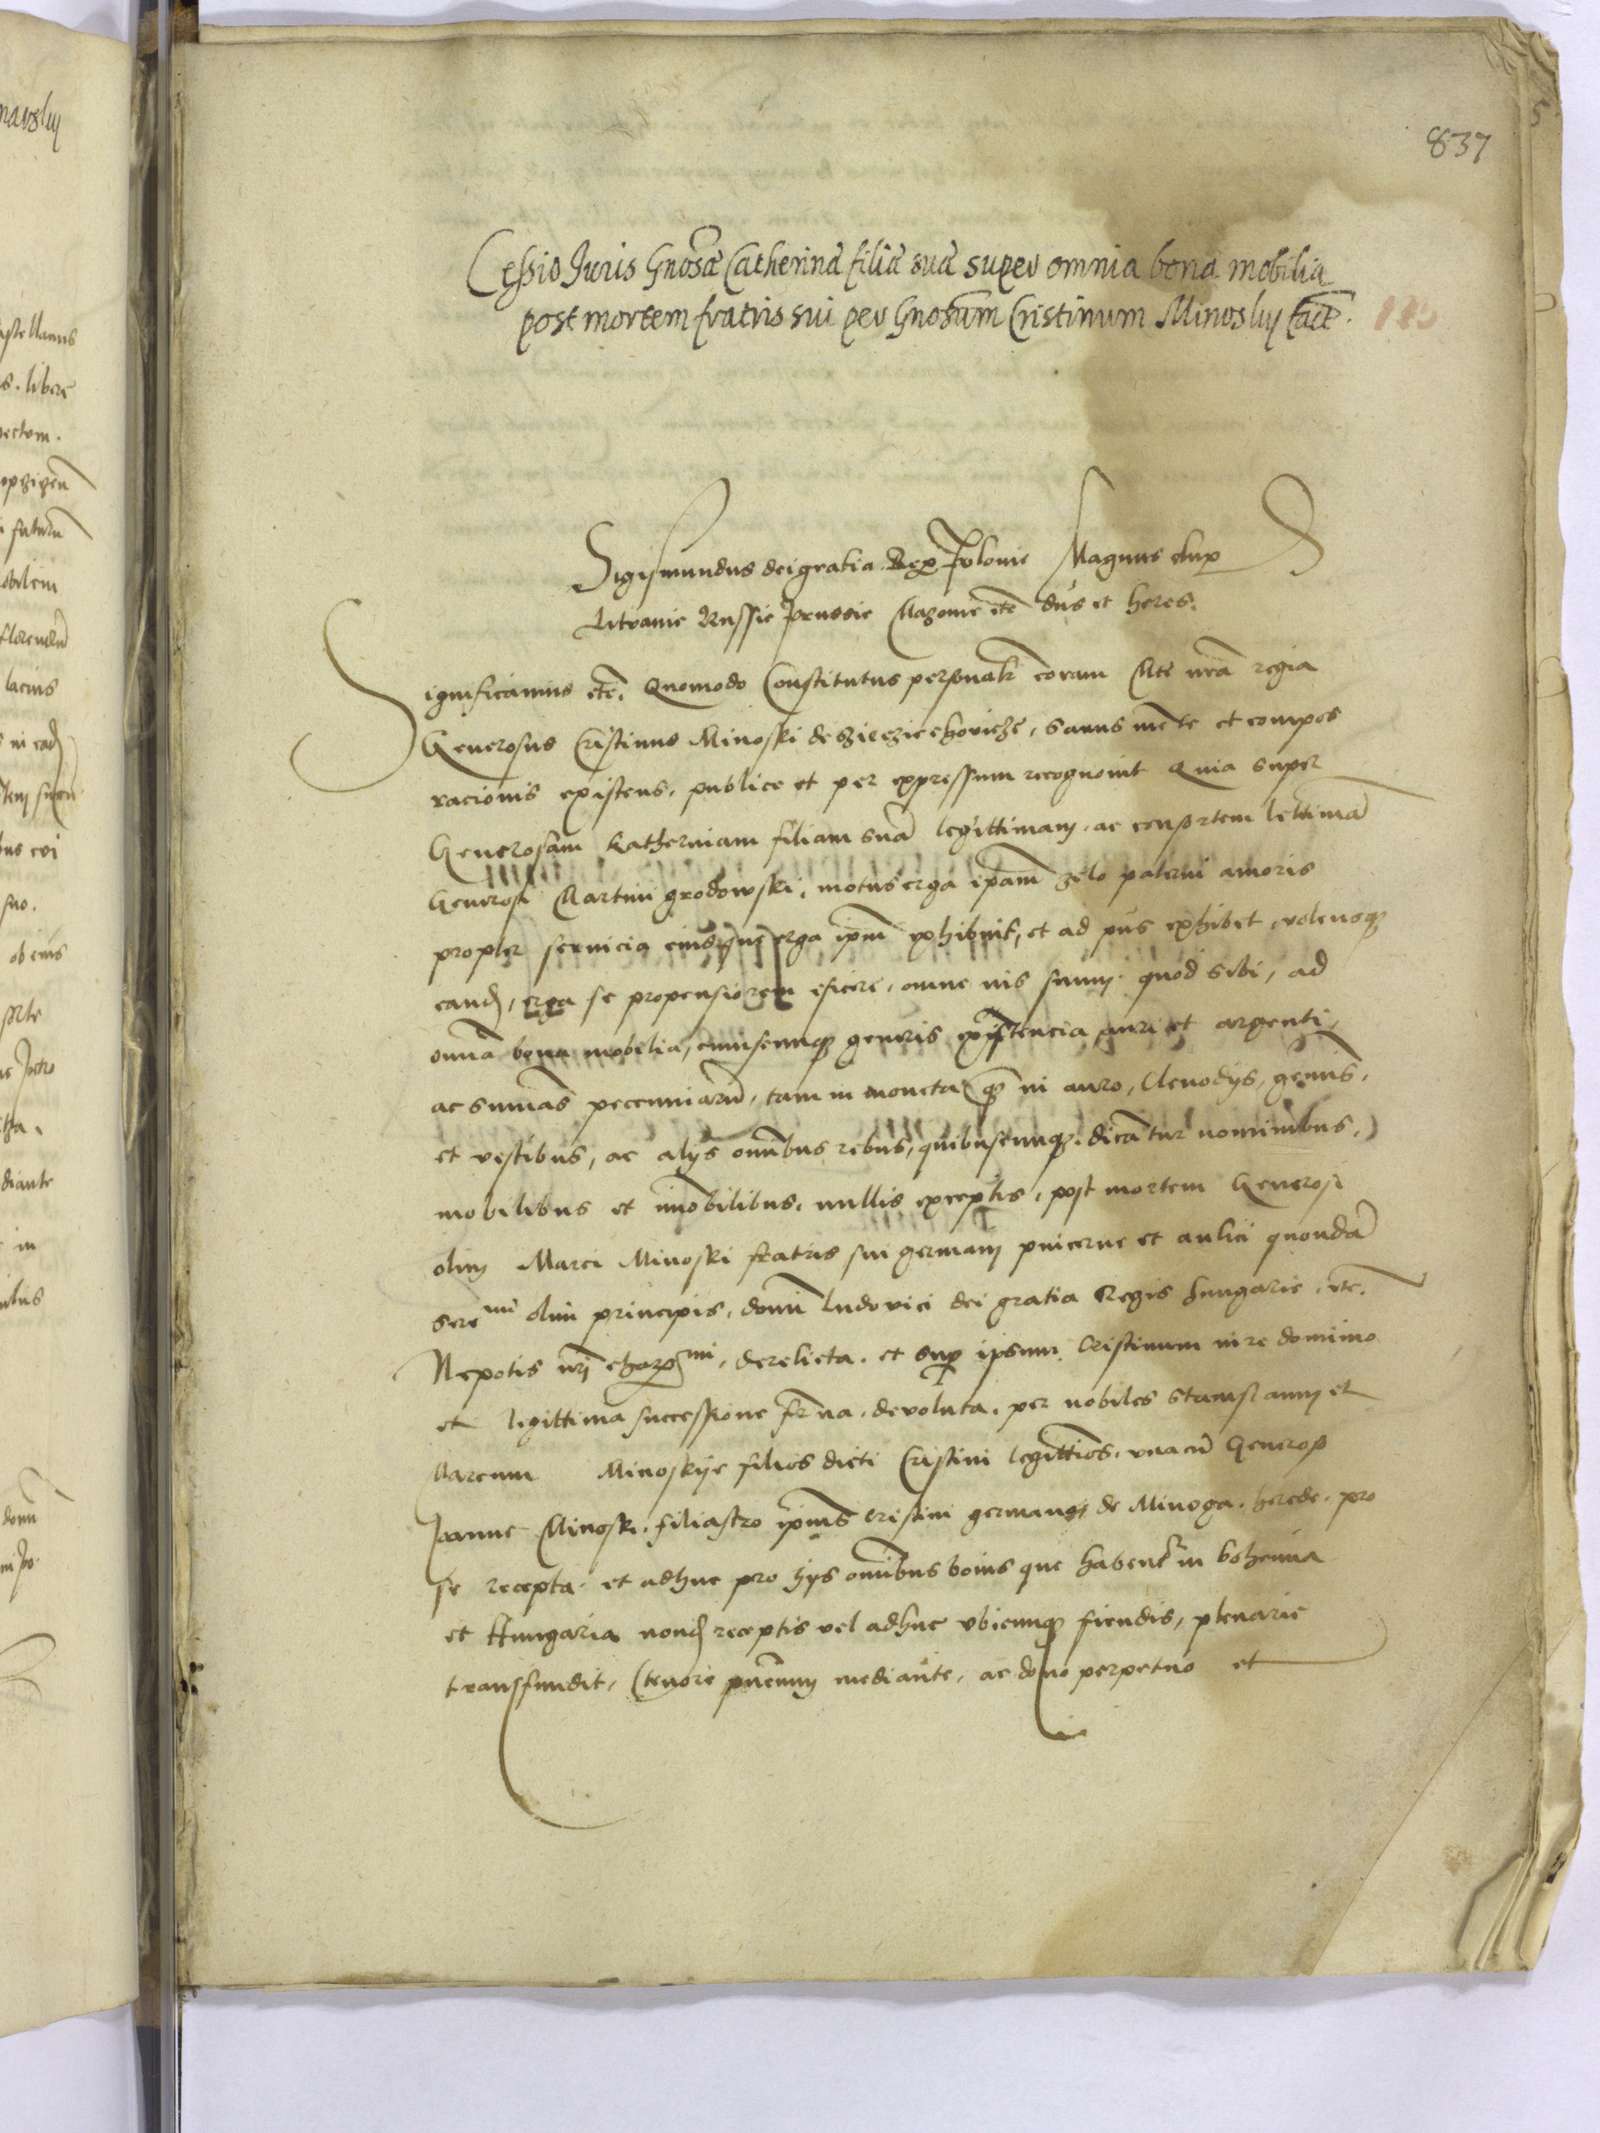 837
Cessio Juris Gnosae Catherinae filiae suae super omnia bona mobilia
post mortem fratris sui per Gnosum Cristinum Minoskij fact.
Sigismundus dei gratia Rex polonie Magnus dux
Litvanie Russie prussie Mazovie etc dns et heres.
Significamus etc. Quomodo Constitutus personalr coram Mte nra regia
Generosus Cristinus Minoski de, sanus mente et compos
racionis existens, publice et per expressum recognovit Quia super
Generosam Katherinam filiam sua legittimam, ac consortem lettima
Generosi Martini grodowski, motus erga ipam zelo paterni amoris
propter servicia eius que erga ipm exhibuit, et ad pns exhibet, volensq
eand, erga se propensiorem eficere, omne ius suum, quod sibi, ad
omnia bona mobilia, cuiuscunq generis existencia auri et argenti,
ac summas peccuniaru, tam in moneta q in auro, Clenodijs, gemis,
et vestibus, ac alijs omibus rebus, quibuscunq dicantur nominibus,
mobilibus et imobilibus, nullis exceptis, post mortem Generosi
olim Marci Minoski fratris sui germani pincerne et aulici quonda
sere mi olim principis, domi Ludovici dei gratia Regis hungarie, etc.
Nepotis nri charmi, derelicta, et sup ipsum Cristinum iure domino
et legittima successione devoluta, per nobiles Stanislaum et
Marcum Minoskije filios dicti Cristini legittios, unacu Generoso
Joanne Minoski, filiastro ipius Cristini germano de Minoga herede, pro
se recepta, et adhuc pro hijs omibus bonis que habentr in bohemia
et Hungaria nond receptis vel adhuc ubicunq fiendis, plenarie
transfundit, tenore pncium mediante, ac dono perpetuo et